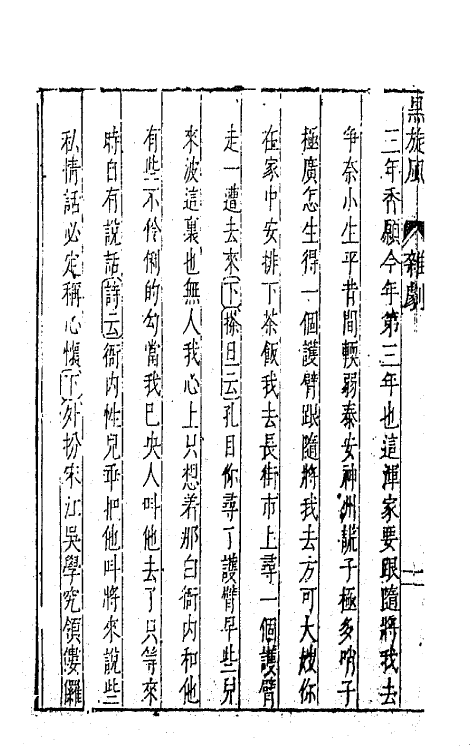 黒旋風 雜劇 二
三年香願今年第三年也這渾家要跟隨將我去
争奈小生平昔間軟弱泰安神州謊子極多哨子
極廣怎生得一個護臂跟隨將我去方可大嫂你
在家中安排下茶飯我去長街市上尋一個護臂
走一遭去來下搽旦云孔目你尋了護臂早些兒
來波這裏也無人我心上只想着那白衙内和他
有些不伶俐的勾當我已央人叫他去了只等來
時自有說話詩云衙内性兒乖把他叫將來說些
私情話必定稱心懷下外扮宋江吳學究領僂儸